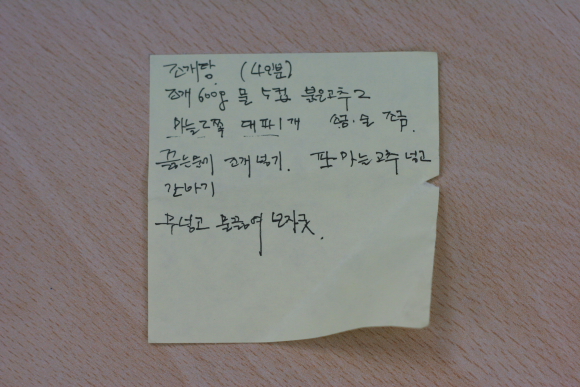 조개탕 (4인분)
조개 600g 물 5컵 붉은고추 2
마늘 2쪽 대파 1개 소금·술 조금.
끓는물에 조개넣기. 파·마늘 고추 넣고
간하기
무넣고 물끓여